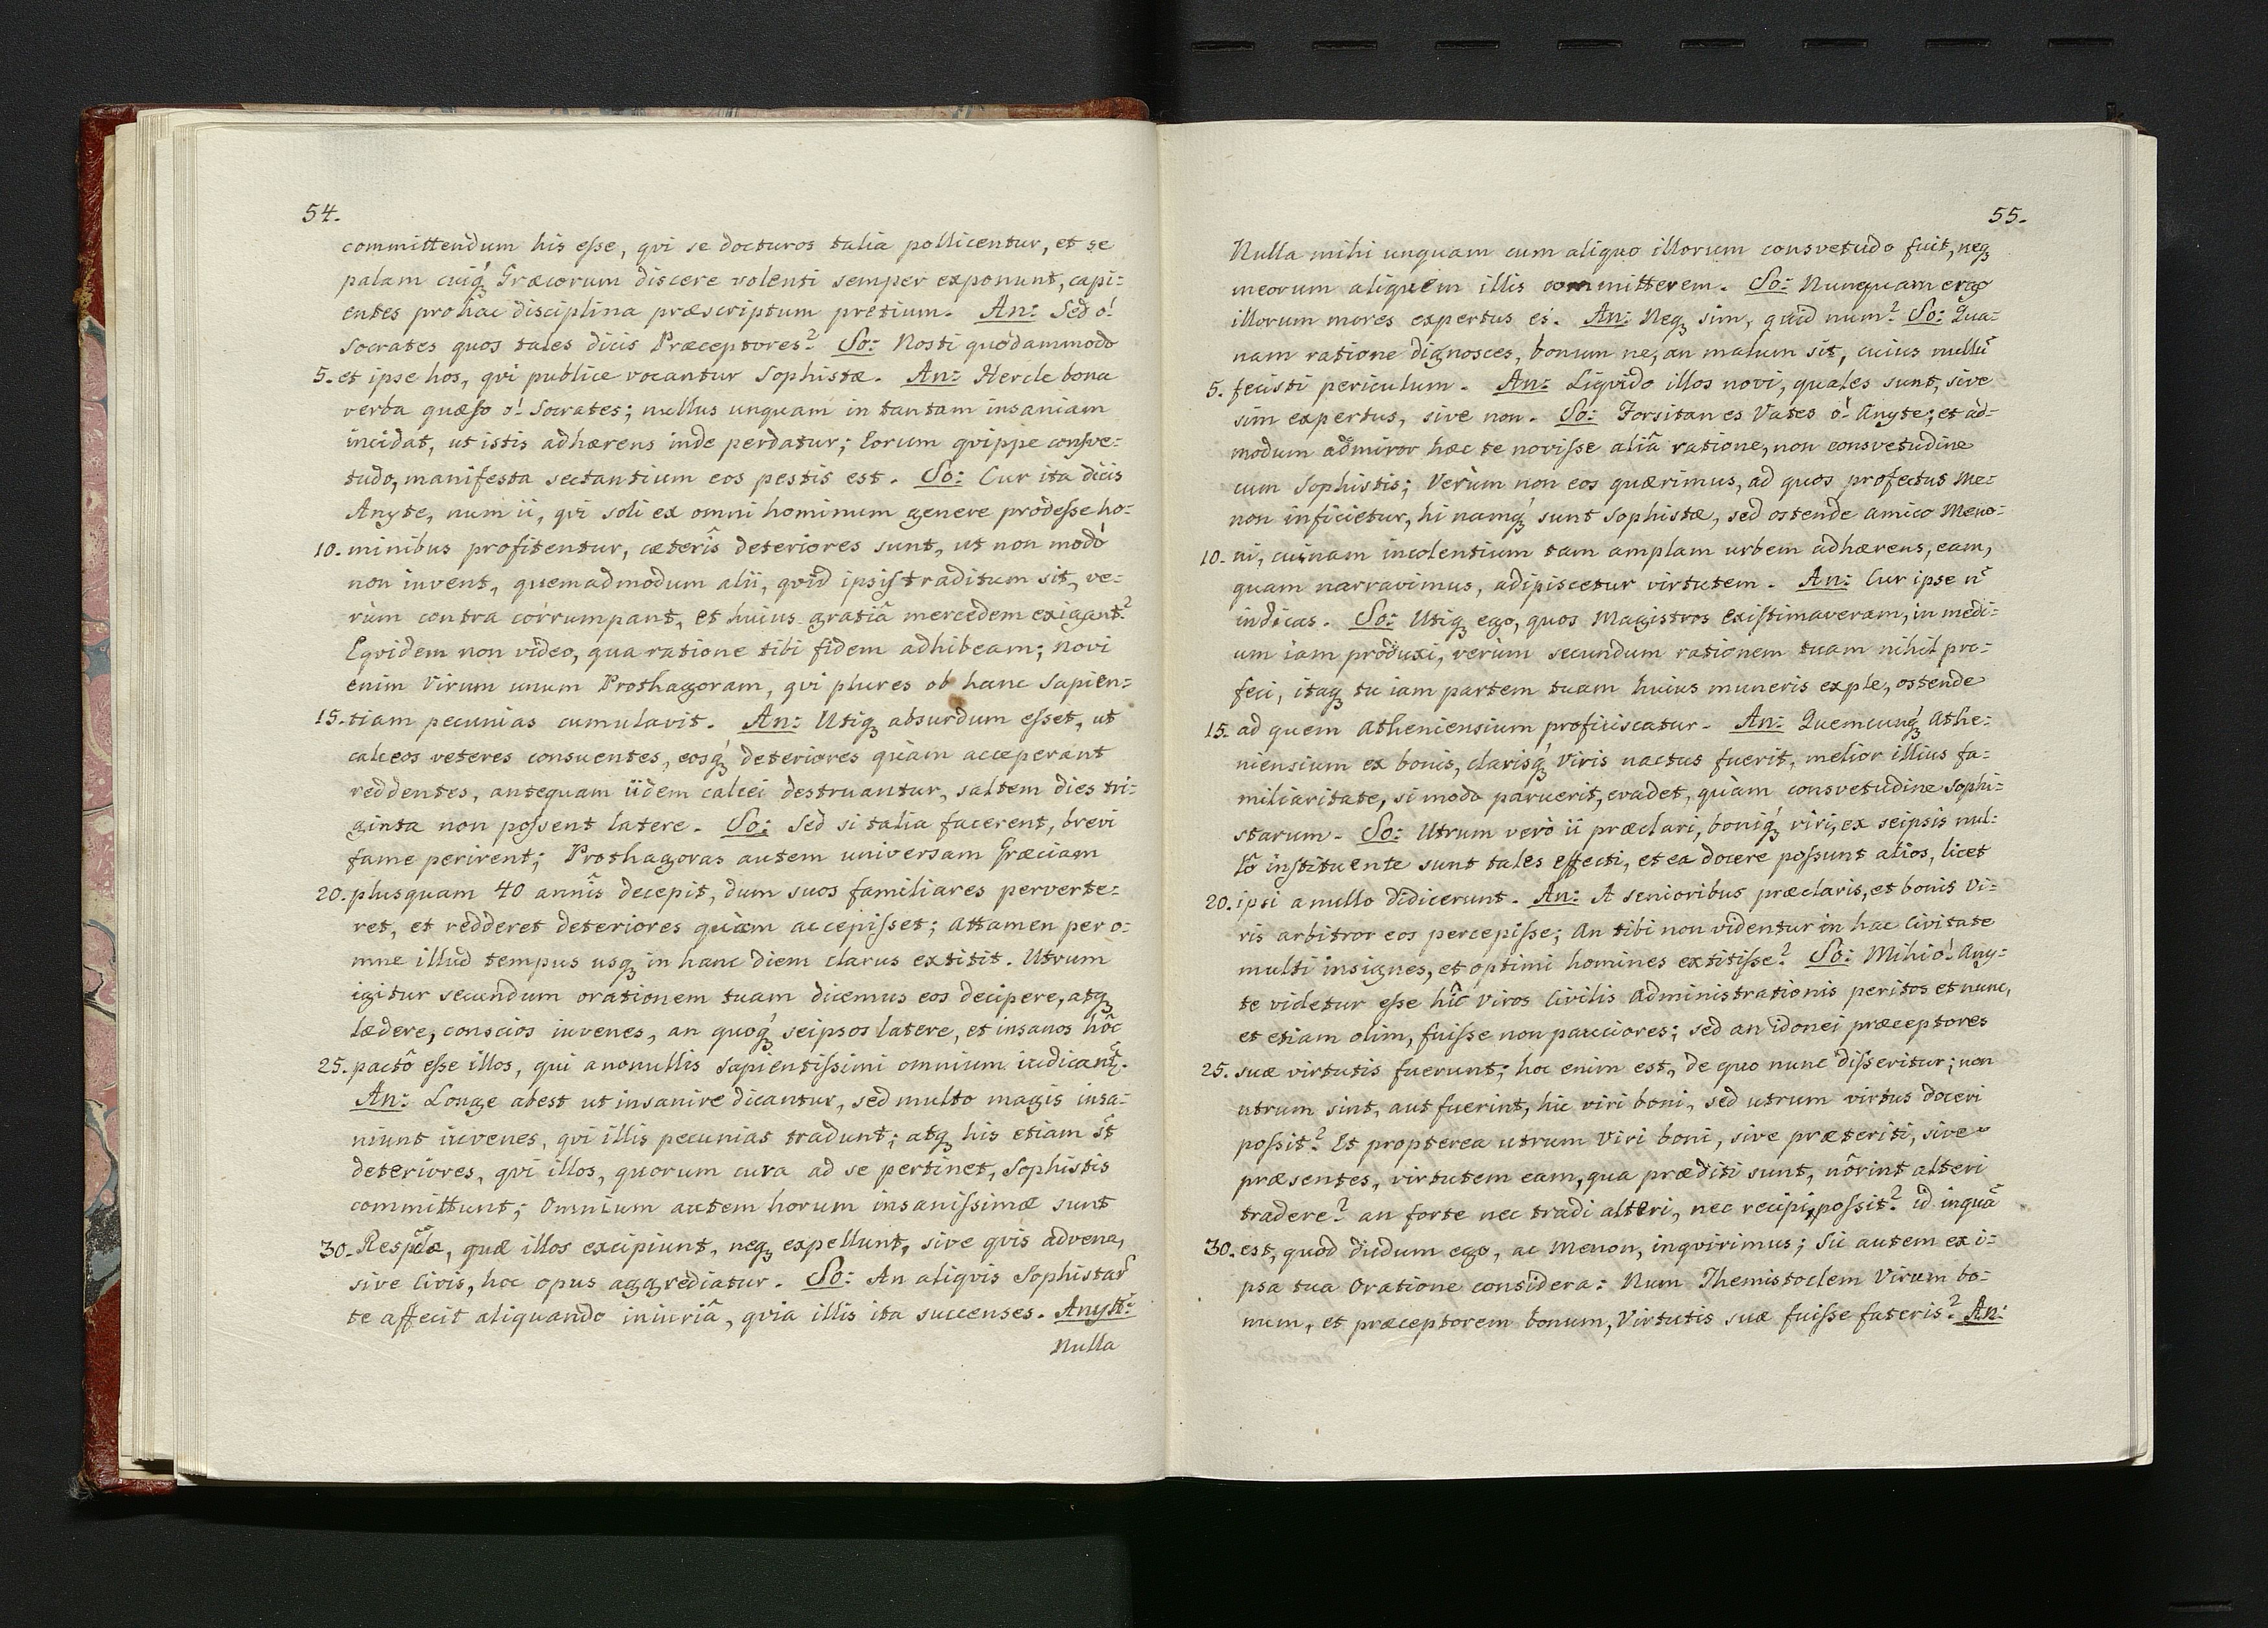 54.
committendum his eſse, qvi se docturos talia pollicentur, et se
palam cuiq́ꝫ Græcorum discere volenti semper exponunt, capi:
entes pro hâc disciplina præscriptum pretium. An: Sed o!
Socrates quos tales dicis Præceptores? So: Nosti quodammodo
5. et ipse hos, qvi publice vocantur Sophistæ. An: Hercle bona
verba quæſo o! Socrates; nullus unquam in tantam insaniam
incidat, ut istis adhærens inde perdatur; Eorum qvippe conſve:
tudo, manifesta sectantium eos pestis est. So: Cur ita dicis
Anyte, num ii, qvi soli ex omni hominum genere prodeſse ho:
10. minibus profitentur, cæterîs deteriores sunt, ut non modò
non iuvent, quemadmodum alii, qvid ipsiſ traditum sit, ve:
rùm contra corrumpant, et huius gratiâ mercedem exigant?
Eqvidem non video, qua ratione tibi fidem adhibeam; novi
enim Virum unum Prothagoram, qvi plures ob hanc Sapien:
15. tiam pecunias cumulavit. An: Utiqꝫ absurdum eſset, ut
calceos veteres consuentes, eosq́ꝫ deteriores quàm acceperant
reddentes, antequam iidem calcei destruantur, saltem dies tri:
ginta non poſsent latere. So: Sed si talia facerent, brevi
fame perirent; Prothagoras autem universam Græciam
20. plusquam 40 annîs decepit, dum suos familiares perverte:
ret, et redderet deteriores quàm accepiſset; attamen per o:
mne illud tempus usqꝫ in hanc diem clarus extitit. Utrum
igitur secundum orationem tuam dicemus eos decipere, atqꝫ
lædere, conscios iuvenes, an quoq́ꝫ seipsos latere, et insanos hôc
25. pactô eſse illos, qui a nonullis sapientiſsimi omnium iudicant̃.
An: Longe abest ut insanire dicantur, sed multo magis insa:
niunt iuvenes, qvi illis pecunias tradunt; atqꝫ his etiam st̃
deteriores, qvi illos, quorum cura ad se pertinet, Sophistis
committunt; Omnium autem horum insaniſsimæ sunt
30. Resp̃læ, quæ illos excipiunt, neqꝫ expellunt, sive qvis advena,
sive Civis, hoc opus aggrediatur. So: An aliqvis Sophistar̃
te affecit aliquando iniuriâ, qvia illis ita succenses. Anyt̃:
Nulla
55.
Nulla mihi unquam cum aliquo illorum consvetudo fuit, neqꝫ
meorum aliquem illis committerem. So: Nunquam ergo
illorum mores expertus es. An: Neqꝫ sim, quid num? So: Qua:
nam ratione dignosces, bonum ne, an malum sit, cuius nullũ
5. fecisti periculum. An: Liqvido illos novi, quales sunt, sive
sim expertus, sive non. So: Forsitan es Vates o! Anyte; et ad:
modum admiror hæc te noviſse aliâ ratione, non consvetudine
cum Sophistis; Verùm non eos quærimus, ad quos profectus Me:
non inficietur, hi namq́ꝫ sunt Sophistæ, sed ostende amico Meno:
10. ni, cuinam incolentium tam amplam urbem adhærens, eam,
quam narravimus, adipiscetur virtutem. An: Cur ipse ñ
indicas. So: Utiqꝫ ego, quos Magistros exiſtimaveram, in medi:
um iam produxi, verùm secundum rationem tuam nihil pro:
feci, itaqꝫ tu iam partem tuam huius muneris exple, ostende
15. ad quem Atheniensium proficiscatur. An: Quemcunq́ꝫ Athe:
niensium ex bonis, clarisq́ꝫ viris nactus fuerit, melior illius fa:
miliaritate, si modo paruerit, evadet, quàm consvetudine Sophi:
starum. So: Utrum verò ii præclari, boniq́ꝫ viri, ex seipsis nul:
lô inſtituente sunt tales effecti, et ea docere poſsunt alios, licet
20. ipsi a nullo didicerunt. An: A senioribus præclaris, et bonis Vi:
ris arbitror eos percepiſse; an tibi non videntur in hac Civitate
multi insignes, et optimi homines extitiſse? So: Mihi o! Any:
te videtur eſse hîc Viros Civilis administrationis peritos et nunc,
et etiam olim, fuiſse non pauciores; sed an idonei præceptores
25. suæ virtutis fuerunt; hoc enim est, de quo nunc diſseritur; non
utrum sint, aut fuerint, hic viri boni, sed utrum virtus doceri
poſsit? Et propterea utrum Viri boni, sive præteriti, sive
præsentes, virtutem eam, qua præditi sunt, nôrint alteri
tradere? an forte nec tradi alteri, nec recipi poſsit? id inquã
30. est, quod dudum ego, ac Menon, inqvirimus; Sic autem ex i:
psa tua Oratione considera: Num Themistoclem Virum bo:
num, et præceptorem bonum, Virtutis suæ fuiſse fateris? An: